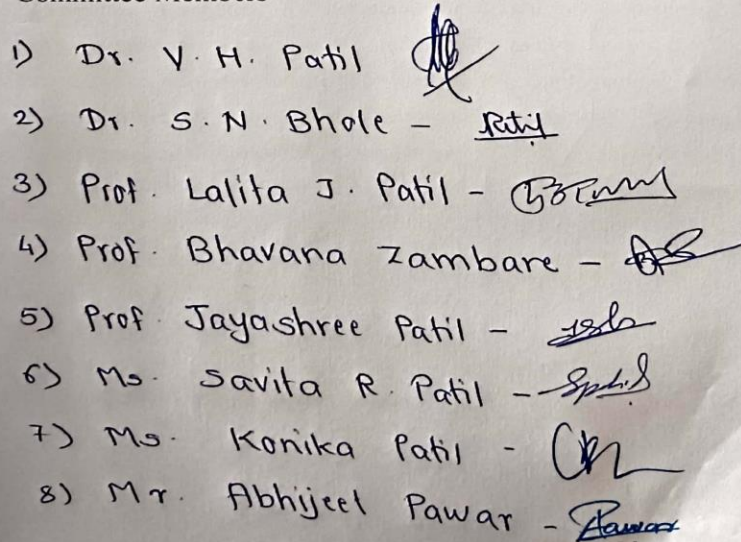 Committee Members
1) Dr. V. H. Patil
2) Dr. S. N. Bhole -
3) Prof. Lalita J. Patil -
4) Prof. Bhavana Zambare -
5) Prof Jayashree Patil -
6) Ms. Savita R. Patil -
7) Ms. Konika Patil -
8) Mr. Abhijeet Pawar - Pawar